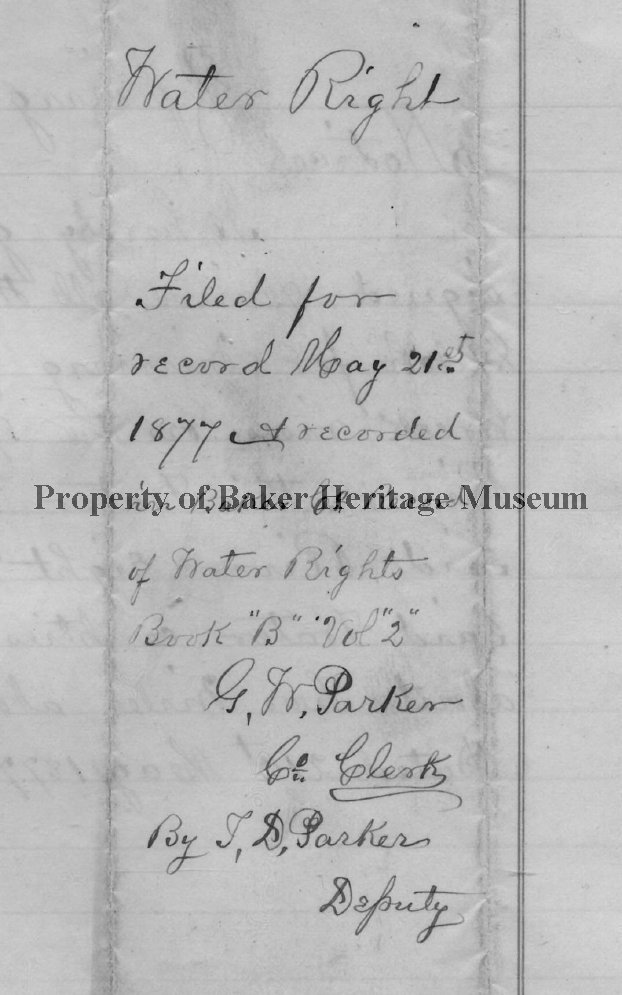 Water Right
Filed for
record May 21st
1877 & recorded
in Baker Co Record
Property of Baker Heritage Museum
of Water Rights
Book "B" Vol "2"
G. W. Parker
Co Clerk
By T. D. Parker
Deputy